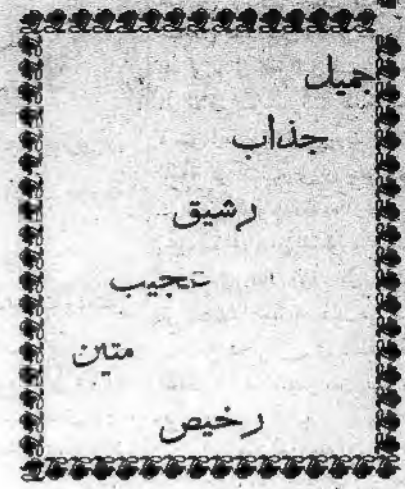 جميل
جذاب
رشيق
عجيب
متين
رخيص